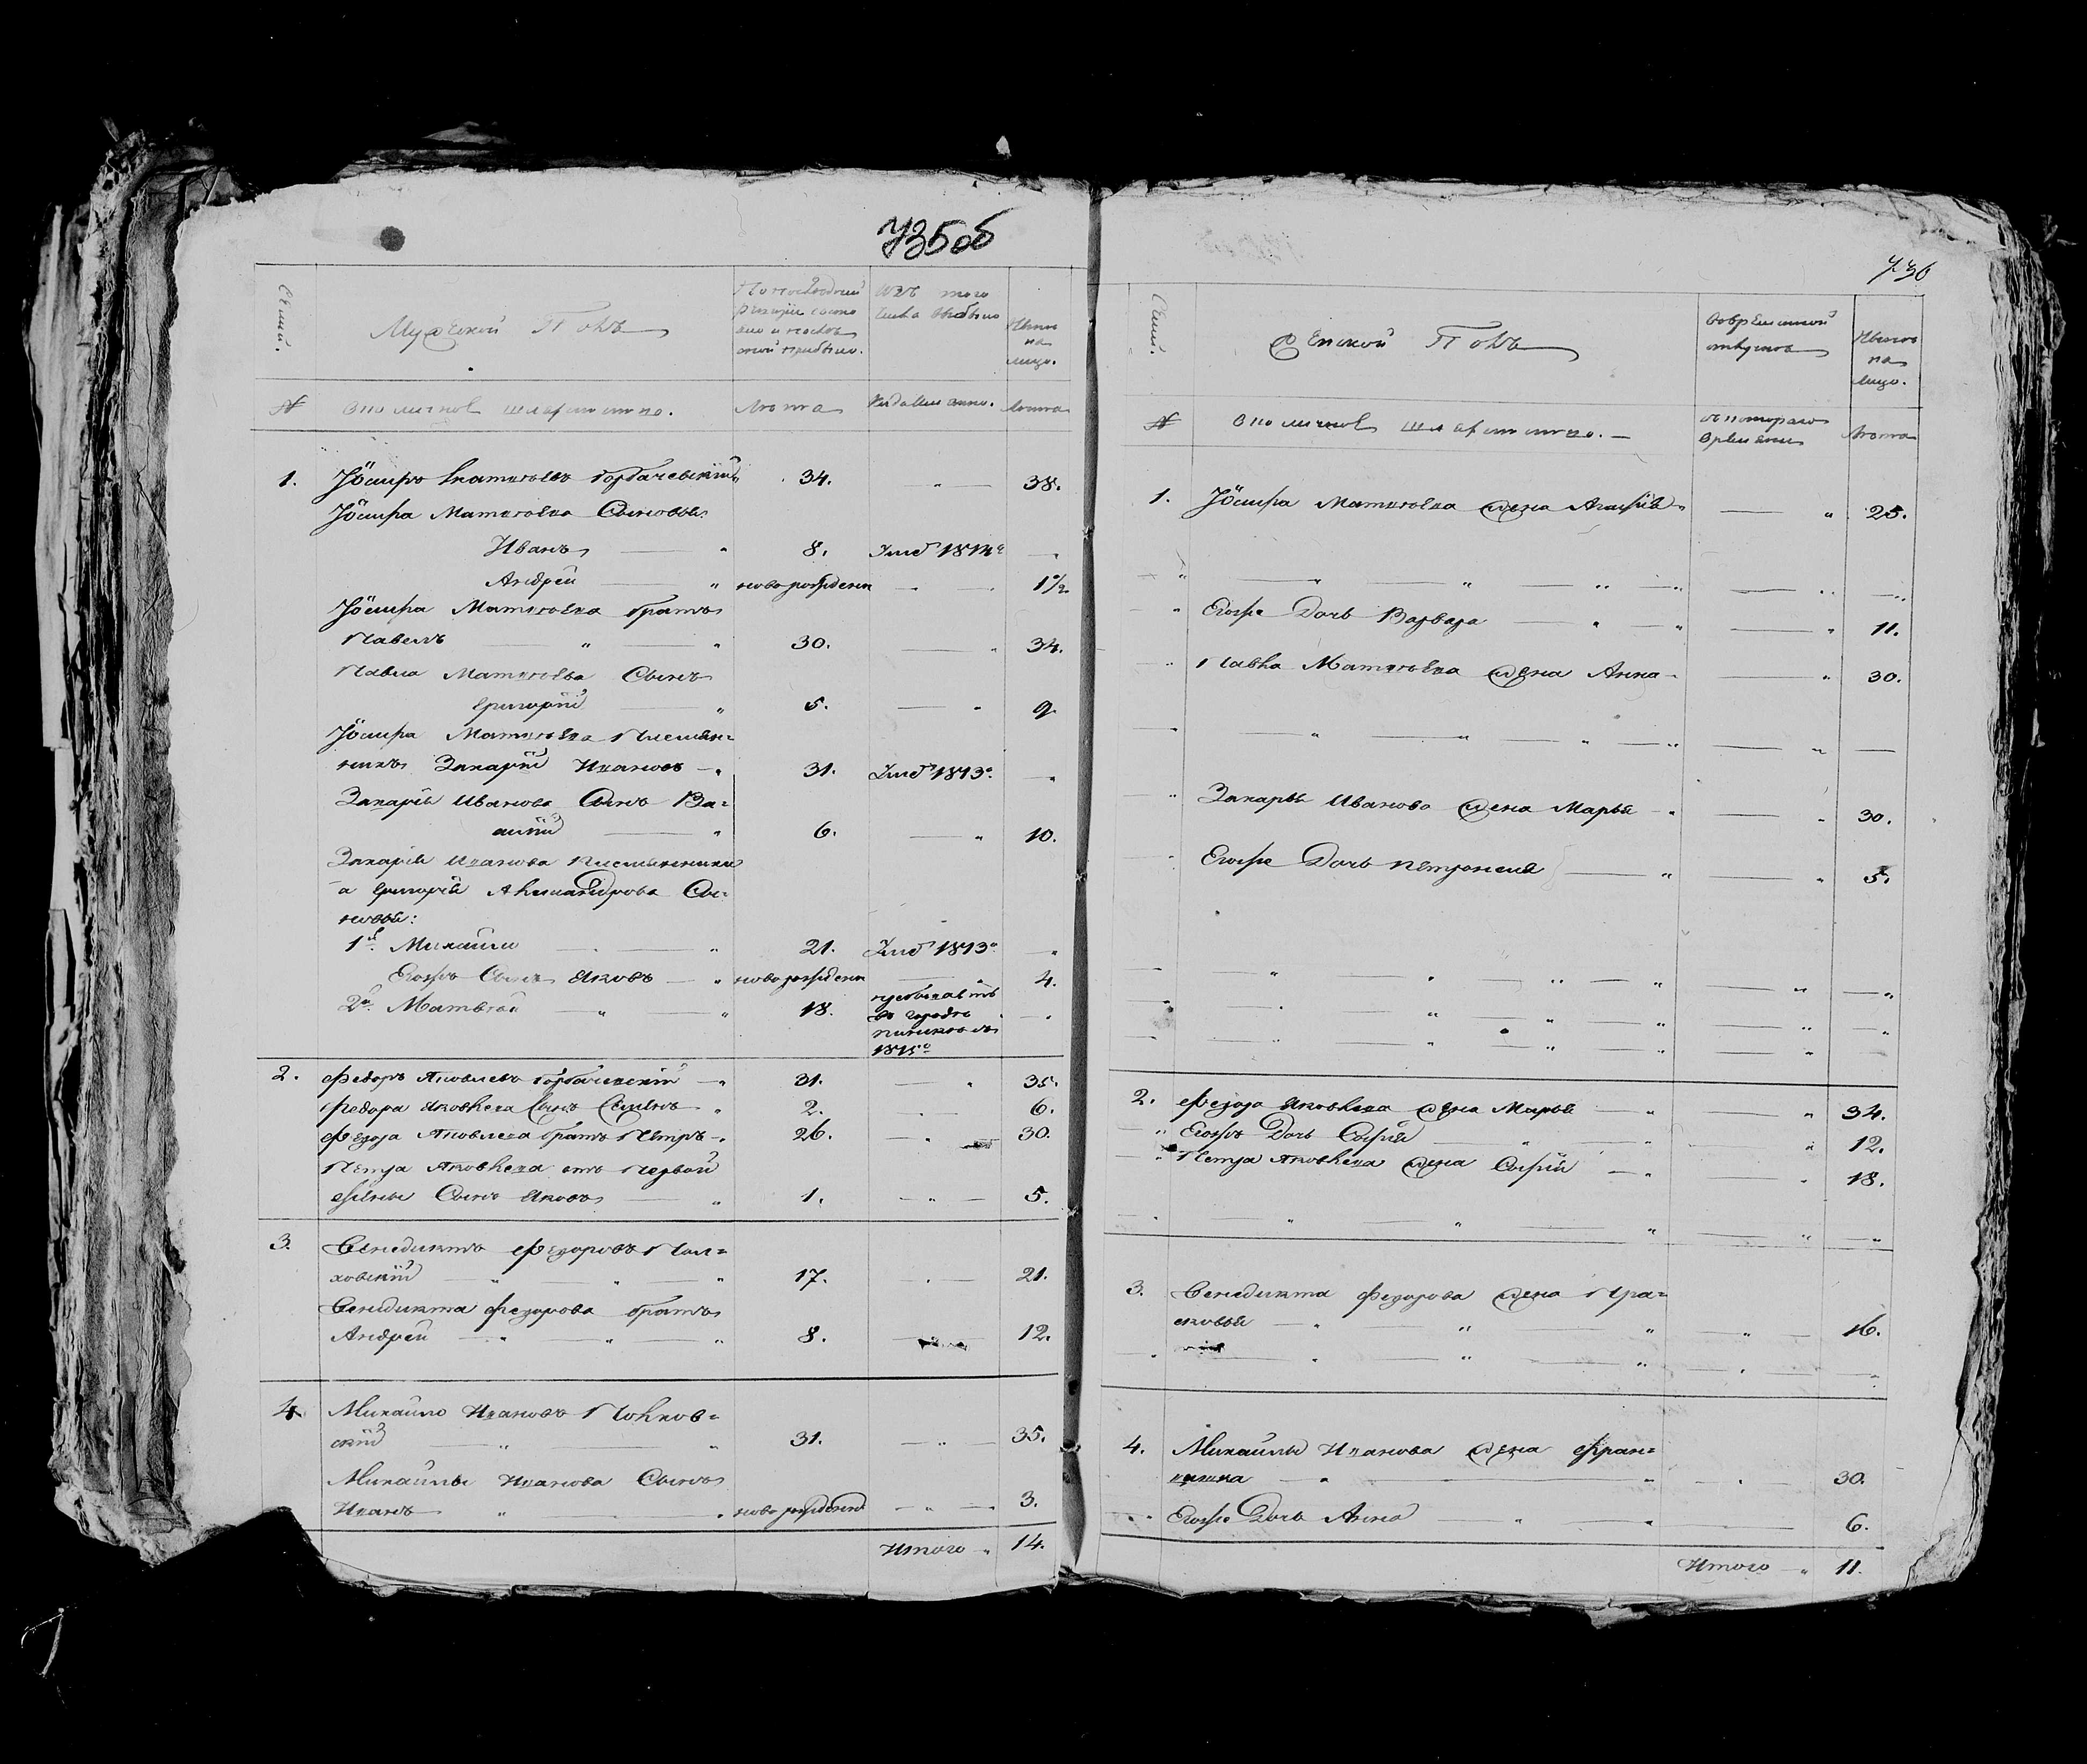 735об
Семьи.
Мужеской Полъ
По последней ревизіи состояло и после оной прибыло.
Изъ того числа выбыло
Ныне на лицо.
№
Околичное шляхетство.
Лета
Когда именно.
Лета
1. Іосифъ Матвеевъ Горбачевскій 34. 38.
Іосифа Матвеева Сыновья:
Иванъ 8. Умеръ 1814г
Андрей новорожденъ 1½
Іосифа Матвеева братъ
Павелъ 30. 34.
Павла Матвеева Сынъ
Григорій 5. 9
Іосифа Матвеева племян=
никъ Захарій Ивановъ 31. Умеръ 1813г
Захарія Иванова Сынъ Ва=
силій 6. 10.
Захарія Иванова племянника
а Григорія Александрова Сы=
новья:
1й Михайло 21. Умеръ 1813г
Егожъ Сынъ Яковъ новорожденъ 4.
2й Матвей 18. въ городе 1815г
2. Федоръ Яковлевъ Горбачевскій 31. 35.
Федора Яковлева Сынъ Семенъ 2. 6.
Федора Яковлева братъ Петръ 26. 30.
Петра Яковлева отъ первой
жены Сынъ Яковъ 1. 5.
3. Венедиктъ Федоровъ Пал=
ховскій 17. 21.
Венедикта Федорова братъ
Андрей 8. 12.
4. Михайло Ивановъ Полков=
скій 31. 35.
Михайлы Иванова Сынъ
Иванъ новорожденъ 3.
Итого 14.
736
Семьи.
Женской Полъ
Во временной отлучке
Ныне на лицо.
№
Околичное шляхетство.
Съ котораго времени
Лета
1. Іосифа Матвеева жена Агафія 25.
Егоже Дочь Варвара 11.
Павла Матвеева жена Анна 30.
Захарія Иванова жена Марья 30.
Егоже Дочь Петронеля 5.
2. Федора Яковлева жена Марья 34.
Егожъ Дочь Софія 12.
Петра Яковлева жена Софія 18.
3. Венедикта Федорова жена Пра=
сковья 16.
4. Михайлы Иванова жена Фран=
цишка 30.
Егоже Дочь Анна 6.
Итого 11.